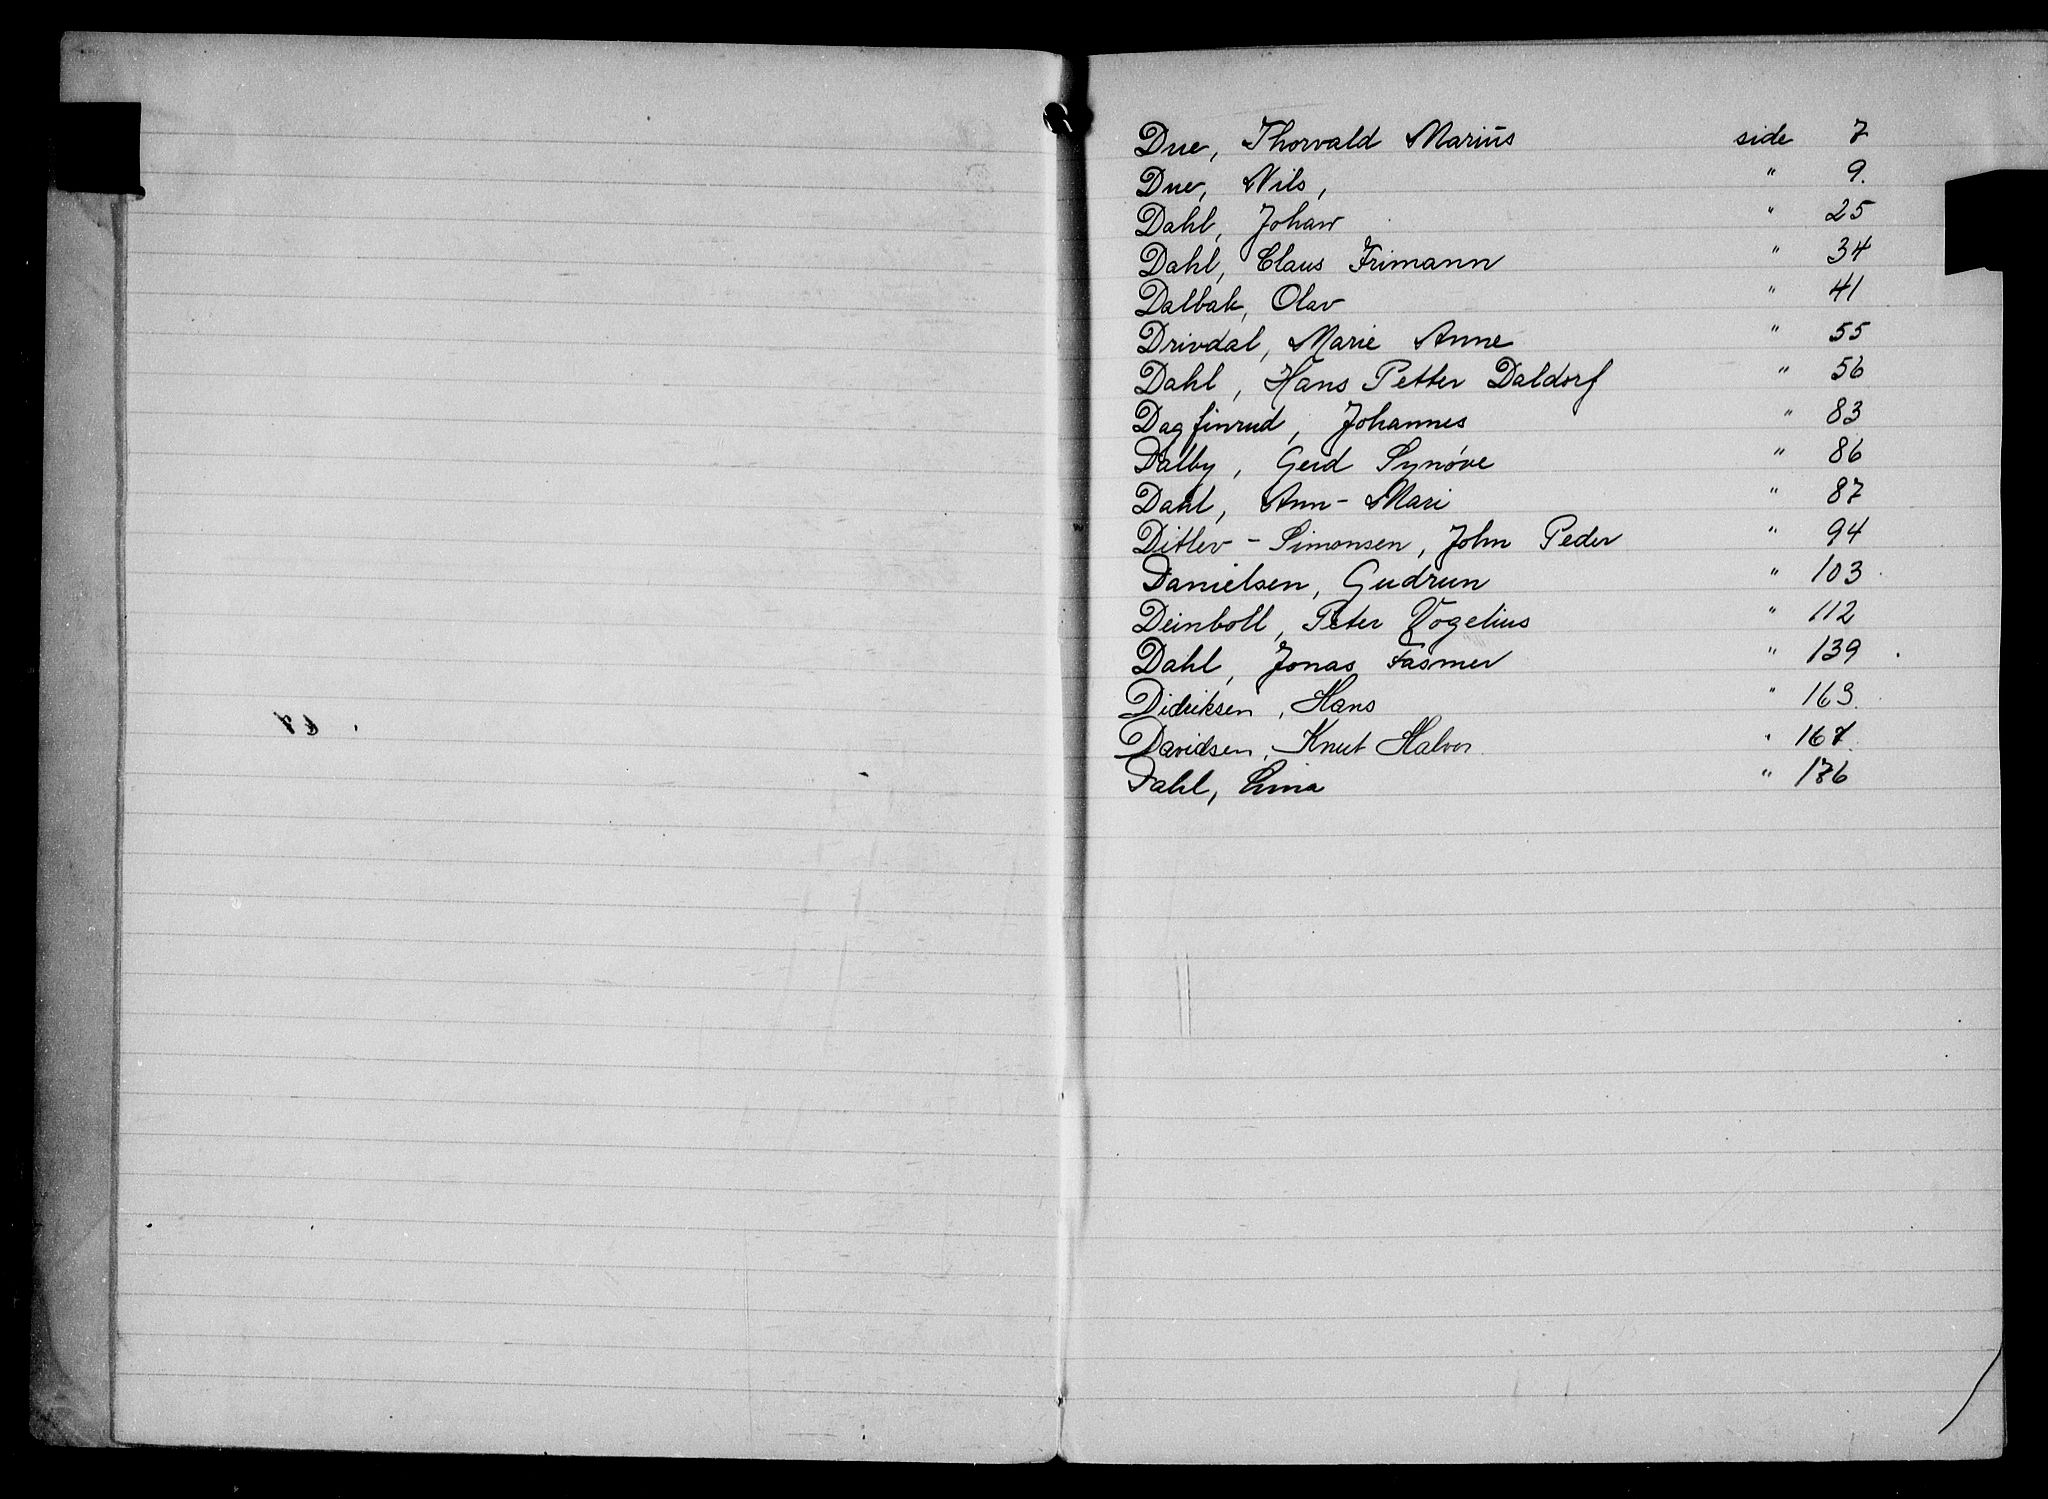 Due, Thorvald Marius side 7
Due, Nils, " 9.
Dahl, Johan " 25
Dahl, Claus Frimann " 34
Dalbak, Olav " 41
Drivdal, Marie Anne " 55
Dahl, Hans Petter Daldorf " 56
Dagfinrud, Johannes " 83
Dalby, Gerd Synøve " 86
Dahl, Ann-Mari " 87
Ditlev-Simonsen, John Peder " 94
Danielsen, Gudrun " 103.
Deinboll, Peter Vogelius " 112
Dahl, Jonas Fasmer " 139.
Didriksen, Hans " 163.
Davidsen, Knut Halvor " 167.
Dahl, "